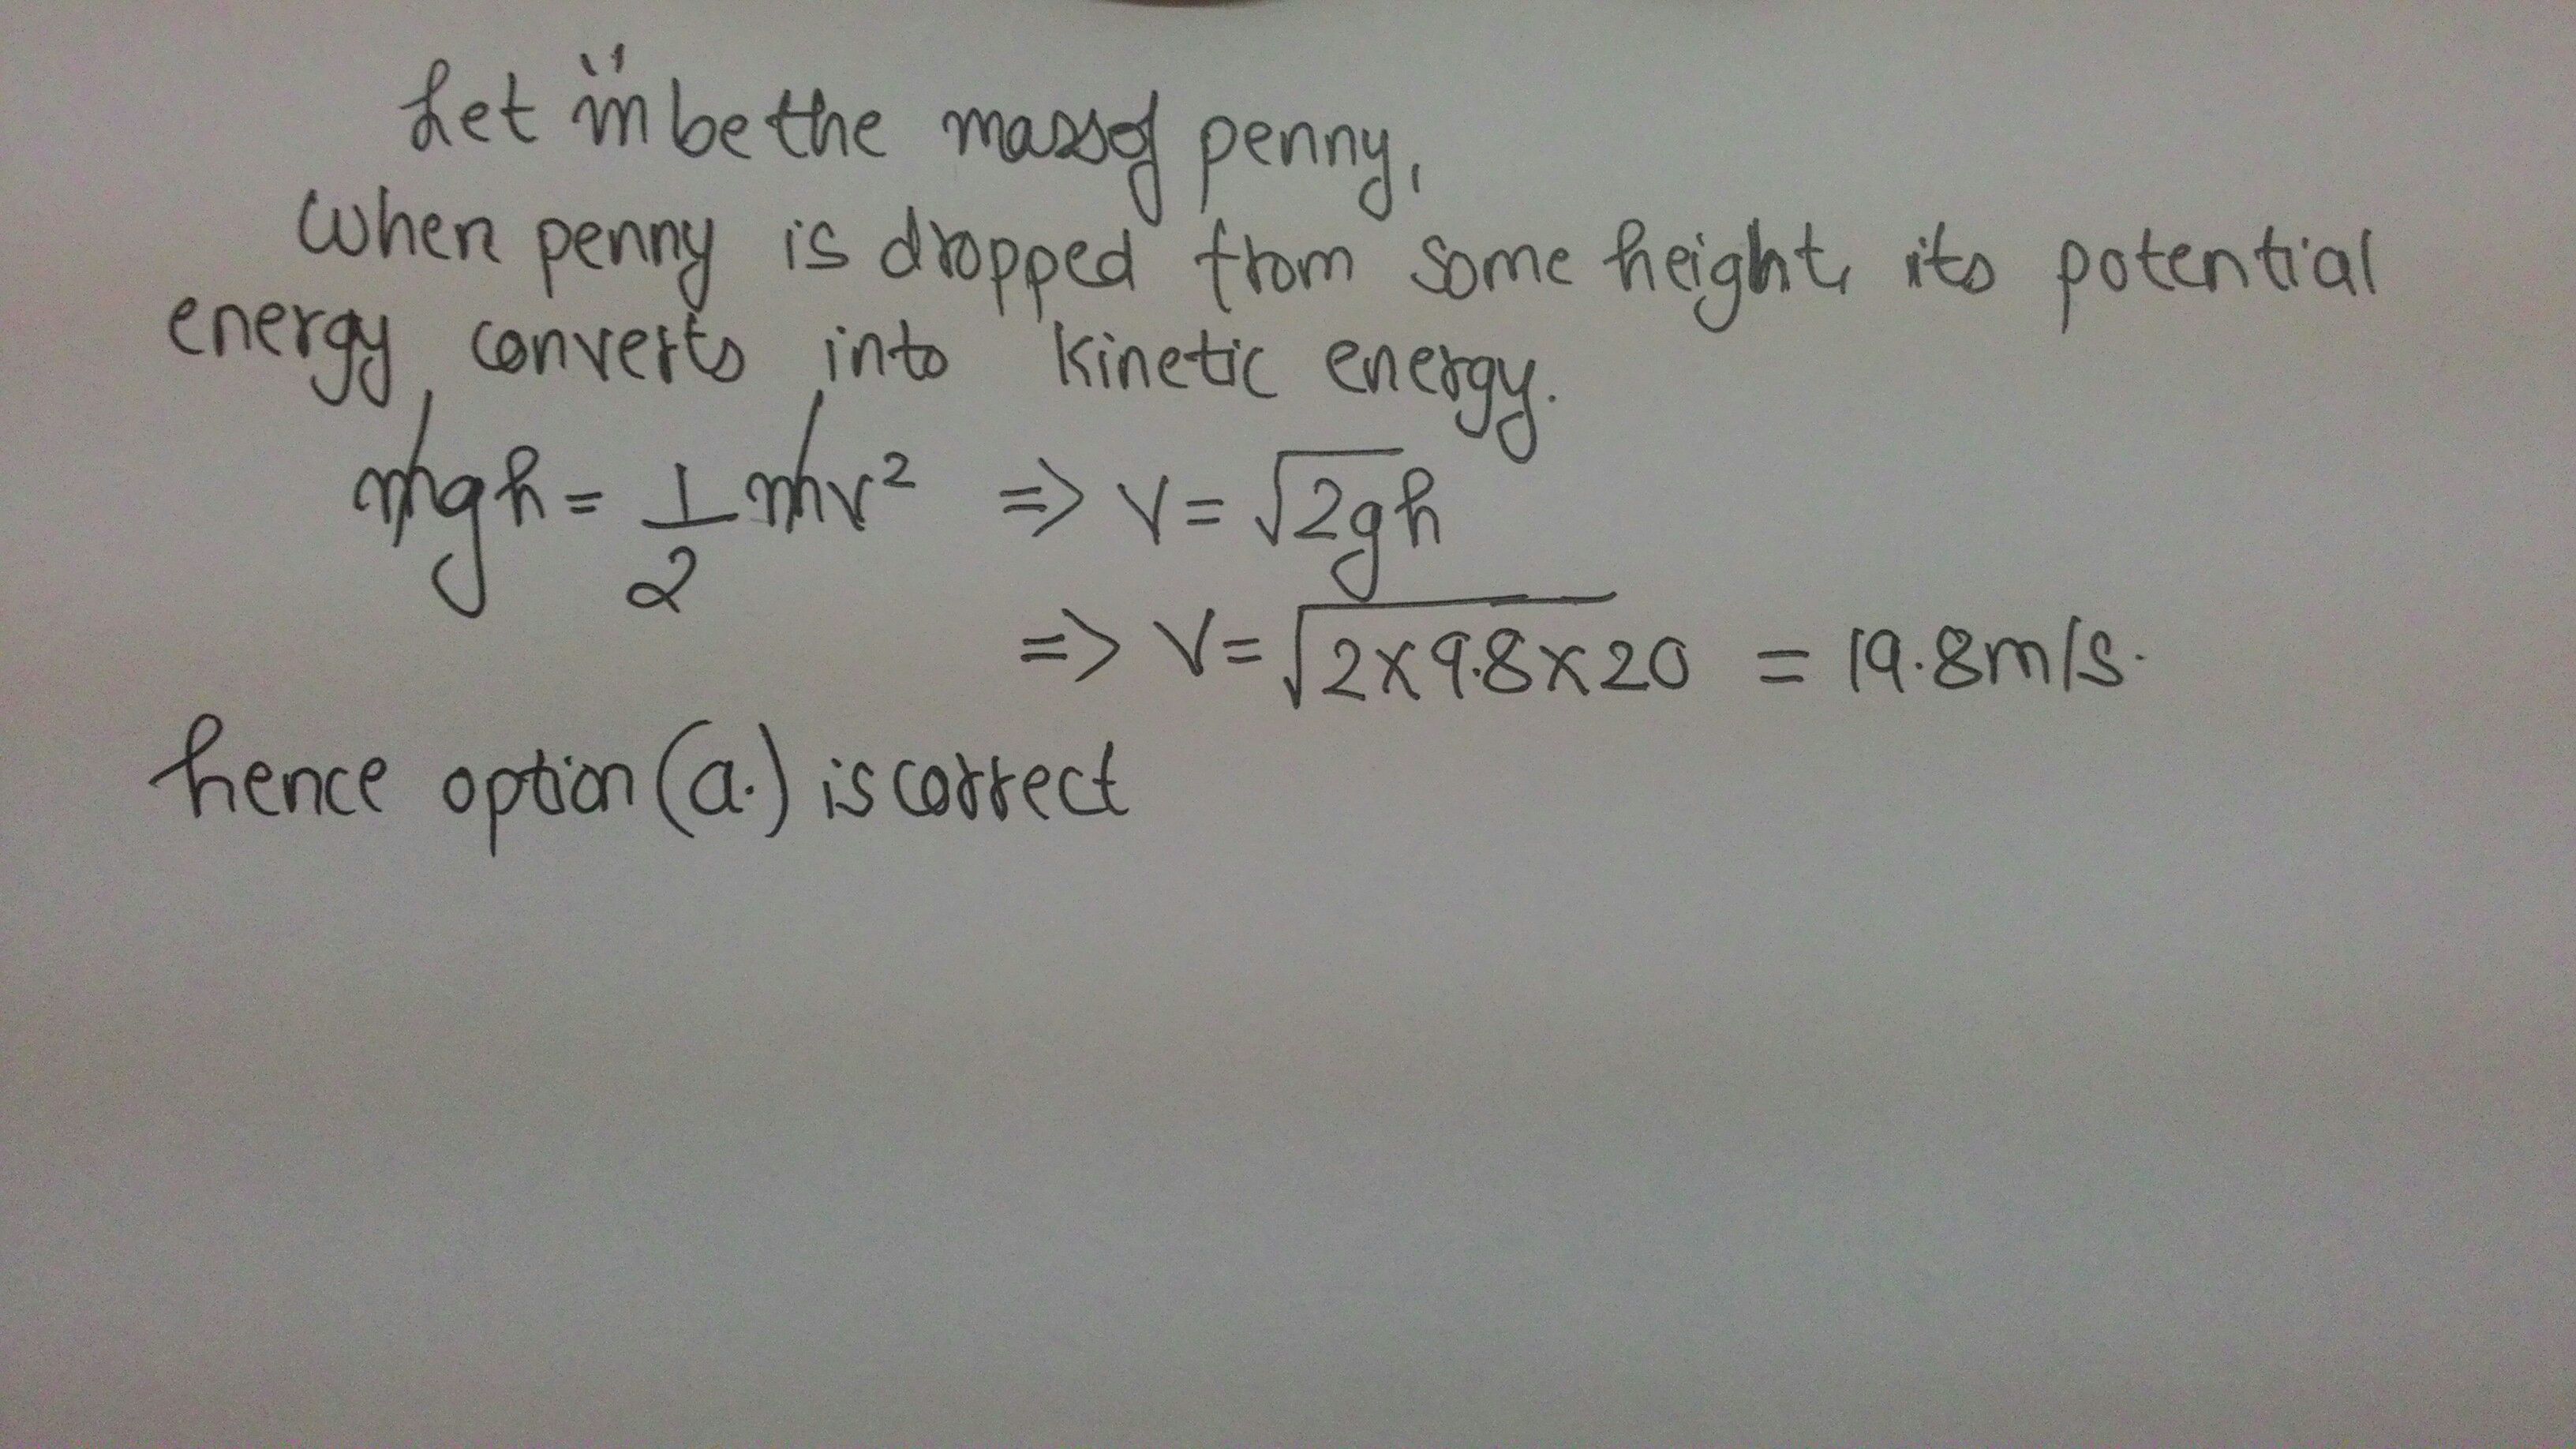 Let "m" be the mass of penny,
When penny is dropped from some height, its potential
energy converts into kinetic energy.
mgh = 1/2 mv² => v = √2gh
=> v = √2×9.8×20 = 19.8m/s.
hence option (a.) is correct